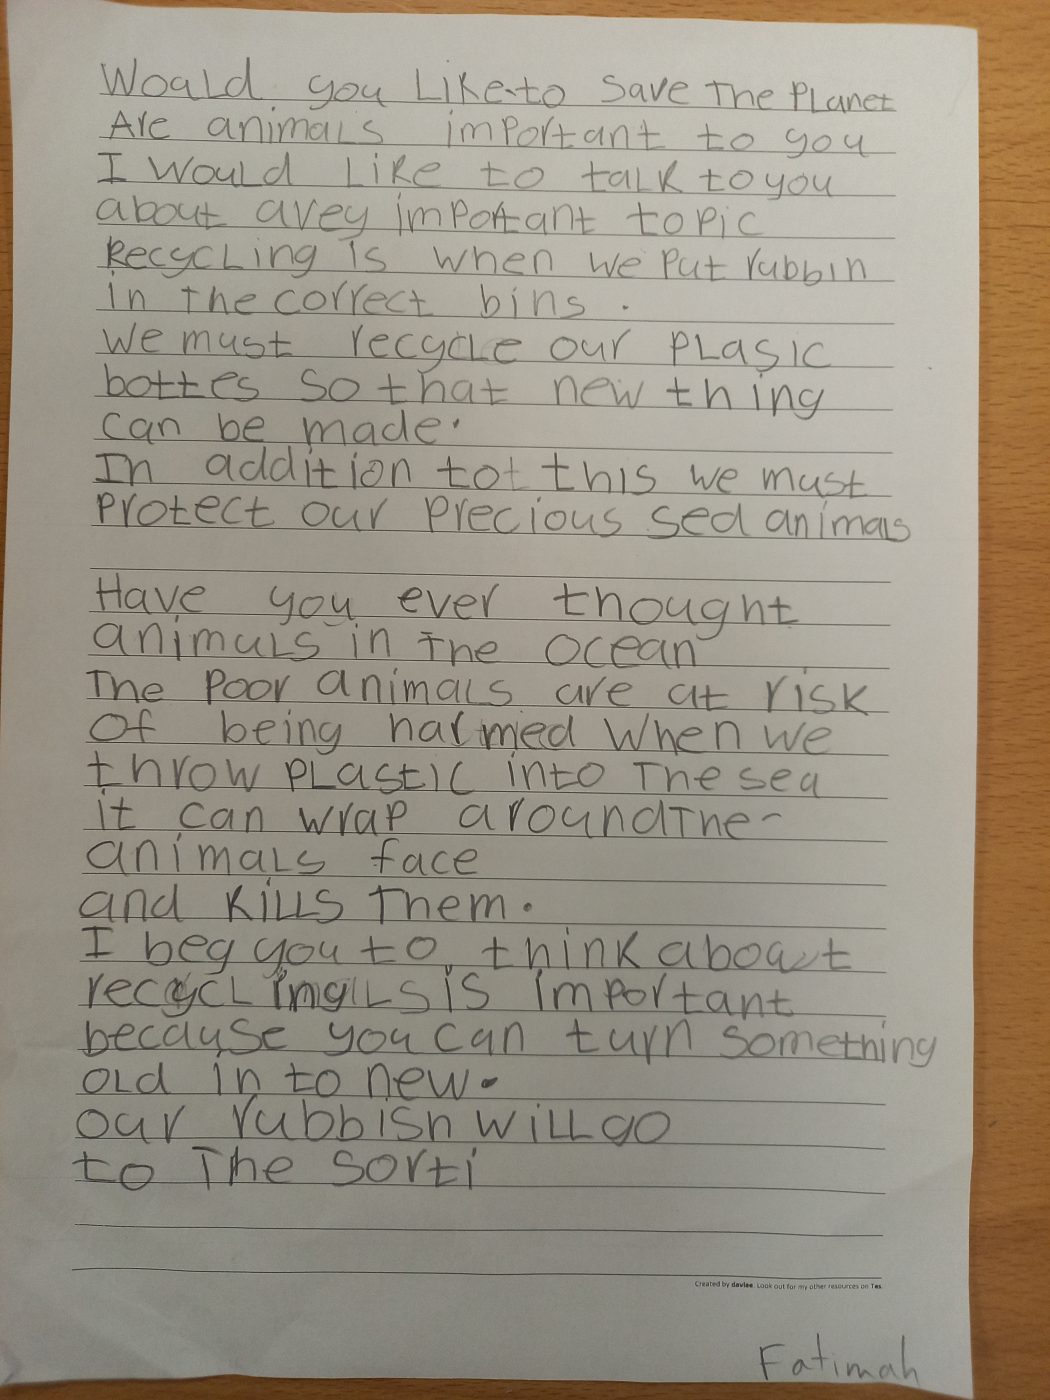 Would you Like to save The Planet
Are animals important to you
I Would Like to talk to you
about avey important topic
Recycling is when we put rubbin
in the correct bins .
We must recycle our plasic
bottes so that new thing
can be made.
In addition tot this we must
Protect our precious sed animals
Have you ever thought
animals in The Ocean
The poor animals are at risk
Of being harmed When we
throw plastic into The sea
it can wrap around The
animals face
and Kills Them.
I beg you to think about
is important
because you can turn something
old in to new.
our rubbish will go
to The sorti
Created by davlee. Look out for my other resources on Tes.
Fatimah